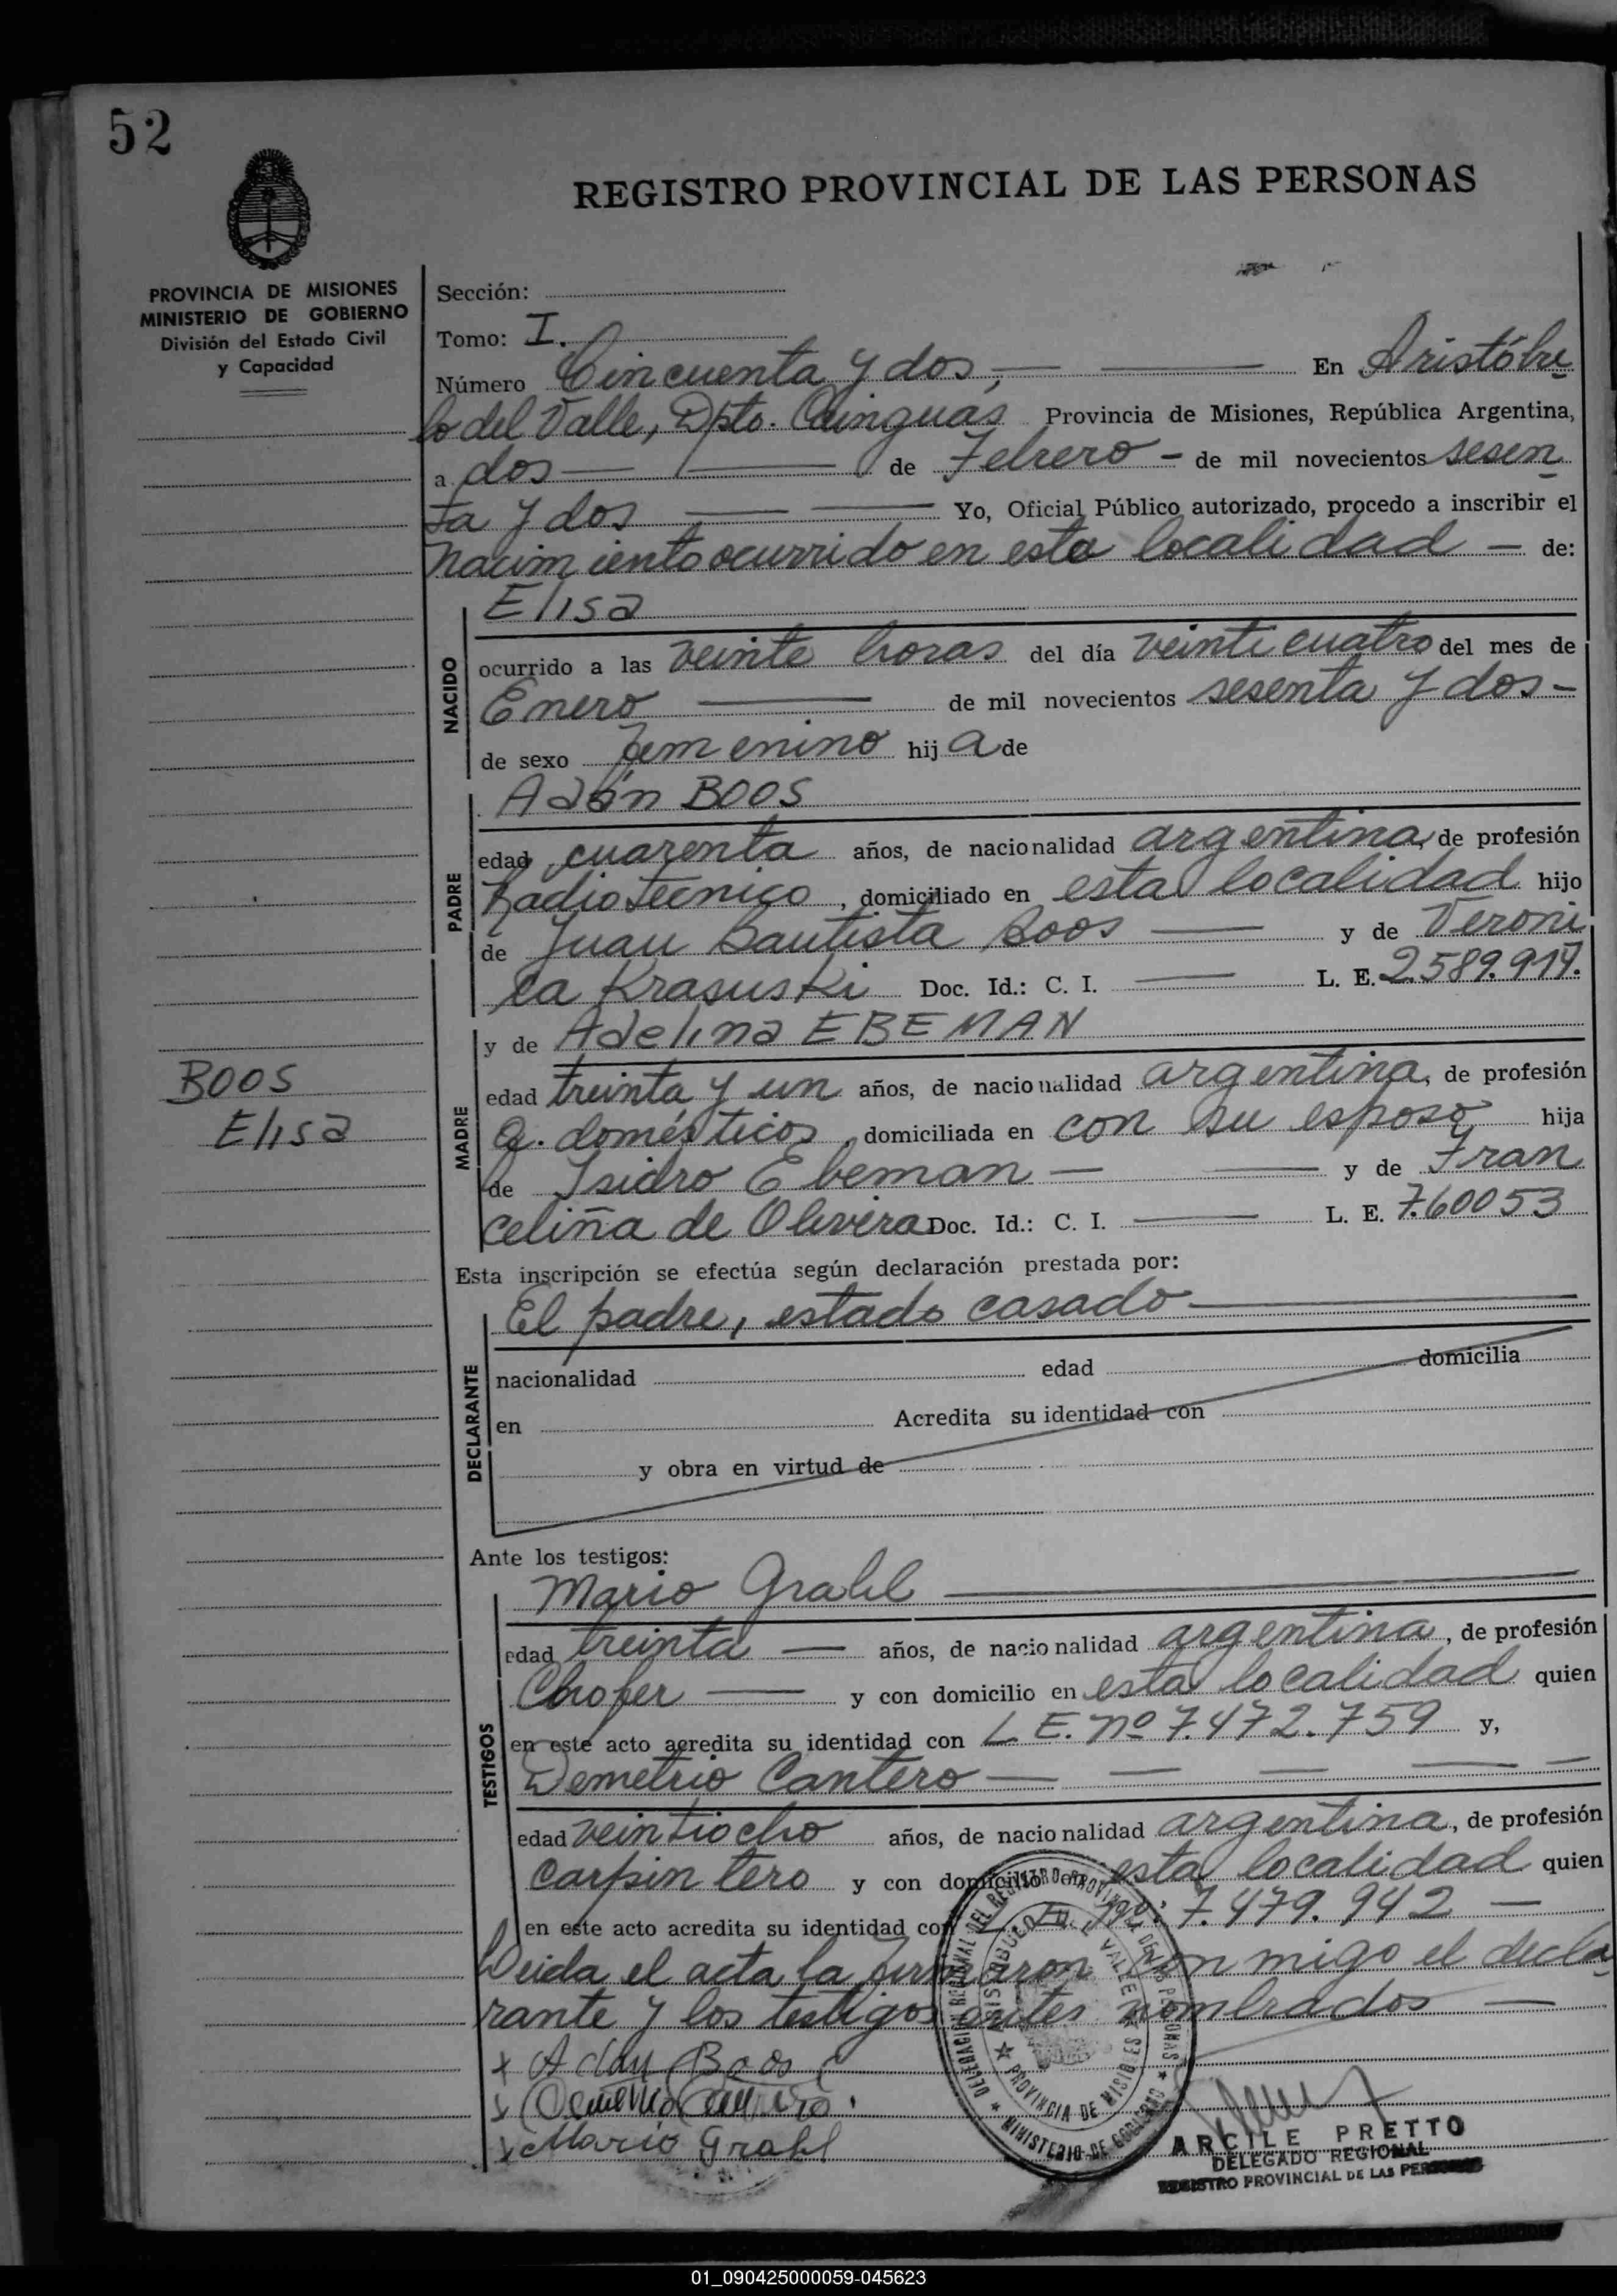 52
REGISTRO PROVINCIAL DE LAS PERSONAS
PROVINCIA DE MISIONES
MINISTERIO DE GOBIERNO
División del Estado Civil
y Capacidad
Sección:
Tomo: I.
Número Cincuenta y dos, En Aristóbu
lo del Valle, Dpto. Cainguás Provincia de Misiones, República Argentina,
a dos de Febrero - de mil novecientos sesen
ta y dos Yo, Oficial Público autorizado, procedo a inscribir el
nacimiento ocurrido en esta localidad - de:
NACIDO
Elisa
ocurrido a las veinte horas del día veinticuatro del mes de
Enero de mil novecientos sesenta y dos-
de sexo femenino hija de
PADRE
Adán BOOS
edad cuarenta años, de nacionalidad argentina, de profesión
Radiotecnico, domiciliado en esta localidad hijo
de Juan Bautista Boos y de Veroni
ca Krasuski Doc. Id.: C. I. L. E. 2.589.917.
MADRE
y de Adelina EBEMAN
edad treinta y un años, de nacionalidad argentina, de profesión
Q. domésticos, domiciliada en con su esposo hija
de Isidro Ebeman - y de Fran
celiña de Olivera Doc. Id.: C. I. L. E. 7.60053
BOOS
Elisa
Esta inscripción se efectúa según declaración prestada por:
DECLARANTE
El padre, estado casado
nacionalidad edad domicilia
en Acredita su identidad con
y obra en virtud de
Ante los testigos:
TESTIGOS
Mario Grahl
edad treinta - años, de nacionalidad argentina, de profesión
Chofer y con domicilio en esta localidad quien
en este acto acredita su identidad con L. E. nº 7.472.759 y,
Demetrio Cantero
edad veintiocho años, de nacionalidad argentina, de profesión
carpintero y con domicilio en esta localidad quien
en este acto acredita su identidad con L. E. nº: 7.479.942 -
Leida el acta la firmaron con migo el decla
rante y los testigos antes nombrados -
x Adan Boos
x Demetrio Cantero
x Mario Grahl
DELEGACION REGIONAL DEL REGISTRO PROVINCIAL DE LAS PERSONAS
MINISTERIO DE GOBIERNO
ARISTOBULO DEL VALLE
PROVINCIA DE MISIONES
ARCILE PRETTO
DELEGADO REGIONAL
REGISTRO PROVINCIAL DE LAS PERSONAS
01_090425000059-045623